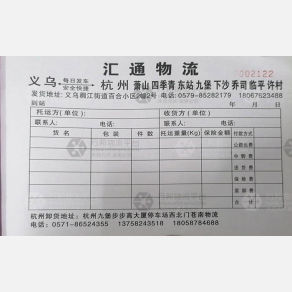 汇通物流
002122
义乌 每日发车 安全快捷 杭州 萧山 四季青 东站 九堡 下沙 乔司 临平 许村
发货地址：义乌稠江街道百合小区2栋2号 电话：0579-85282179 18067523488
到站
托运方（单位）： 收货方（单位）：
联系人： 电话： 联系人： 电话：
货名 包装 件数 托运重量(Kg) 保险金额 付款方式
公路运费
中转费
送货费
保险费
装卸费
总运费
杭州卸货地址：杭州九堡步步高大厦停车场西北门苍南物流
电话：0571-86524355 13758243518 18058784688